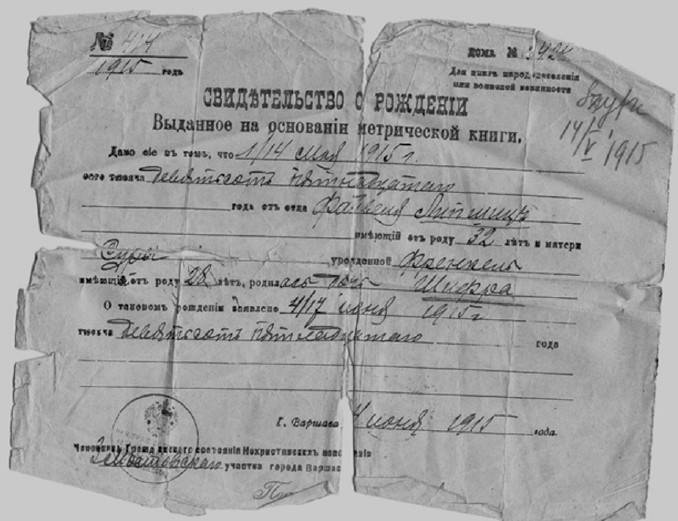 № 414
1915 годъ
дома № 
Для книгъ народонаселенія
или воинской повинности
14/V 1915
СВИДѢТЕЛЬСТВО О РОЖДЕНІИ
Выданное на основаніи метрической книги.
Дано сіе въ томъ, что 1/14 мая 1915 г.
тысяча девятсотъ пятнадцатаго
года отъ отца
имѣющій отъ роду 32 лѣтъ и матери
Суры урожденной Френкель
имѣющій отъ роду 28 лѣтъ, родилась дочь Шифра
О таковомъ рожденіи заявлено 4/17 іюня 1915 г
тысяча девятсотъ пятнадцатаго года
Г. Варшава 4 іюня 1915 года.
Чиновникъ Гражданскаго состоянія Нехристіанскихъ исповѣданій
участка города Варшавы